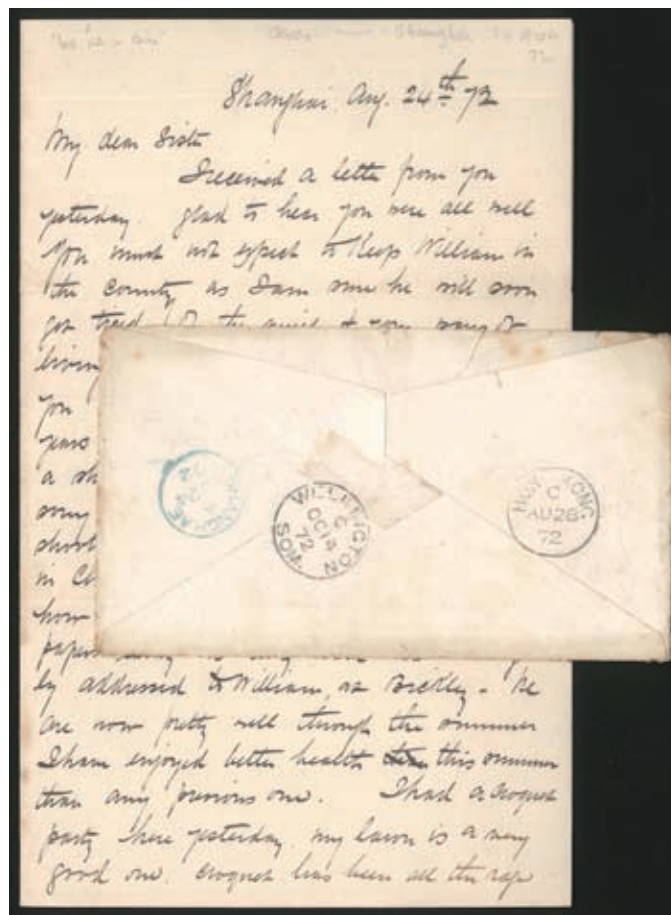 Shanghai Aug. 24th 72
My dear Sister
I received a letter from you
yesterday. glad to hear you were all well
You must not expect to Keep William in
the county as I am sure he will soon
get tired of the quiet &
living
you
years
a sh
many
shoot
in Ch
how
papers
by addressed to William, at Bickley - We
are now pretty well through the summer
I have enjoyed better health this summer
than any previous one. I had a croquet
party here yesterday. my lawn is a very
good one. croquet has been all the rage
SHANGHAE
A
AU 24
72
WELLINGTON
C
OC 14
72
SOM
HONG KONG
C
AU 28
72